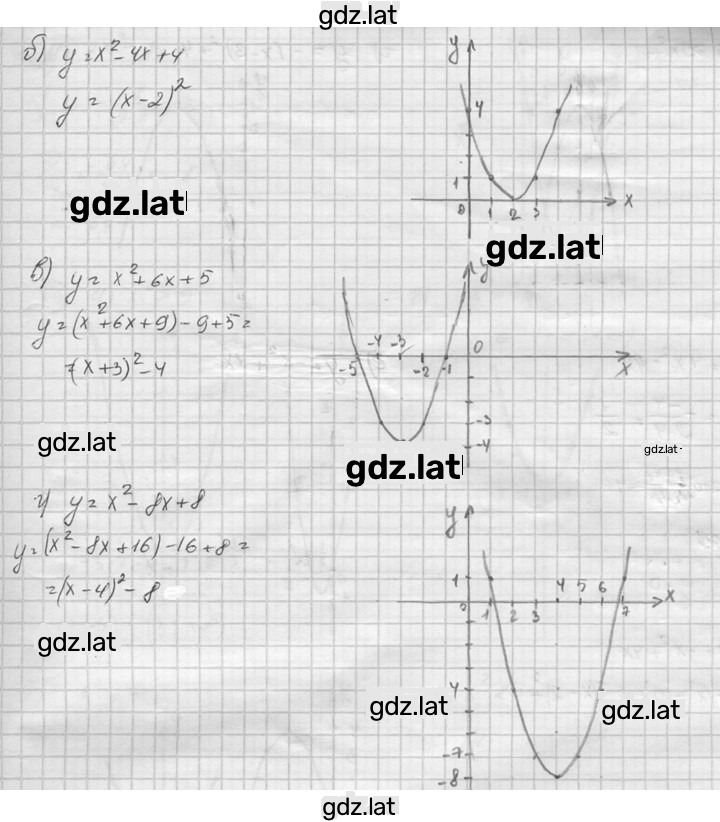 gdz.lat
б) y=x²-4x+4
y = (x-2)²
y
4
1
0 1 2 3 x
gdz.lat
gdz.lat
в) y = x²+6x+5
y=(x²+6x+9)-9+5=
=(x+3)²-4
y
-4 -3 0
-5 -2 -1 x
-3
-4
gdz.lat
gdz.lat
gdz.lat
г) y = x²-8x+8
y=(x²-8x+16)-16+8=
=(x-4)²-8
y
1 4 5 6 x
0 1 2 3 7
4
-7
-8
gdz.lat
gdz.lat
gdz.lat
gdz.lat